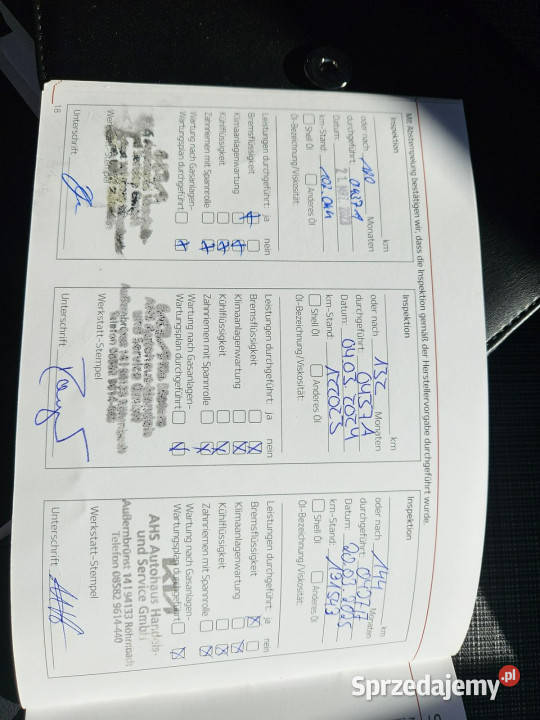 Mit Abstempelung bestätigen wir, dass die Inspektion gemäß der Herstellervorgabe durchgeführt wurde.
Inspektion
km
oder nach 120 Monaten
durchgeführt: 04371
Datum:
km-Stand: 102.044
Shell Öl
Anderes Öl
Öl-Bezeichnung/Viskosität:
Leistungen durchgeführt: ja nein
Bremsflüssigkeit
Klimaanlagenwartung
Kühlflüssigkeit
Zahnriemen mit Spannrolle
Wartung nach Gasanlagen-
Wartungsplan durchgeführt
Unterschrift
18
Inspektion
km
oder nach 132 Monaten
durchgeführt: 04371
Datum: 04.03.2024
km-Stand:
Shell Öl
Anderes Öl
Öl-Bezeichnung/Viskosität:
Leistungen durchgeführt: ja nein
Bremsflüssigkeit
Klimaanlagenwartung
Kühlflüssigkeit
Zahnriemen mit Spannrolle
Wartung nach Gasanlagen-
Wartungsplan durchgeführt
und Service GmbH
Werkstatt-Stempel
Unterschrift
Inspektion
km
oder nach 144 Monaten
durchgeführt:
Datum:
km-Stand: 131543
Shell Öl
Anderes Öl
Öl-Bezeichnung/Viskosität:
Leistungen durchgeführt: ja nein
Bremsflüssigkeit
Klimaanlagenwartung
Kühlflüssigkeit
Zahnriemen mit Spannrolle
Wartung nach Gasanlagen-
Wartungsplan durchgeführt
KIA
AHS Autohaus Handels-
und Service GmbH
Außernbrünst 14 | 94133 Röhrnbach
Telefon 08582 9614-440
Werkstatt-Stempel
Unterschrift
Sprzedajemy.pl